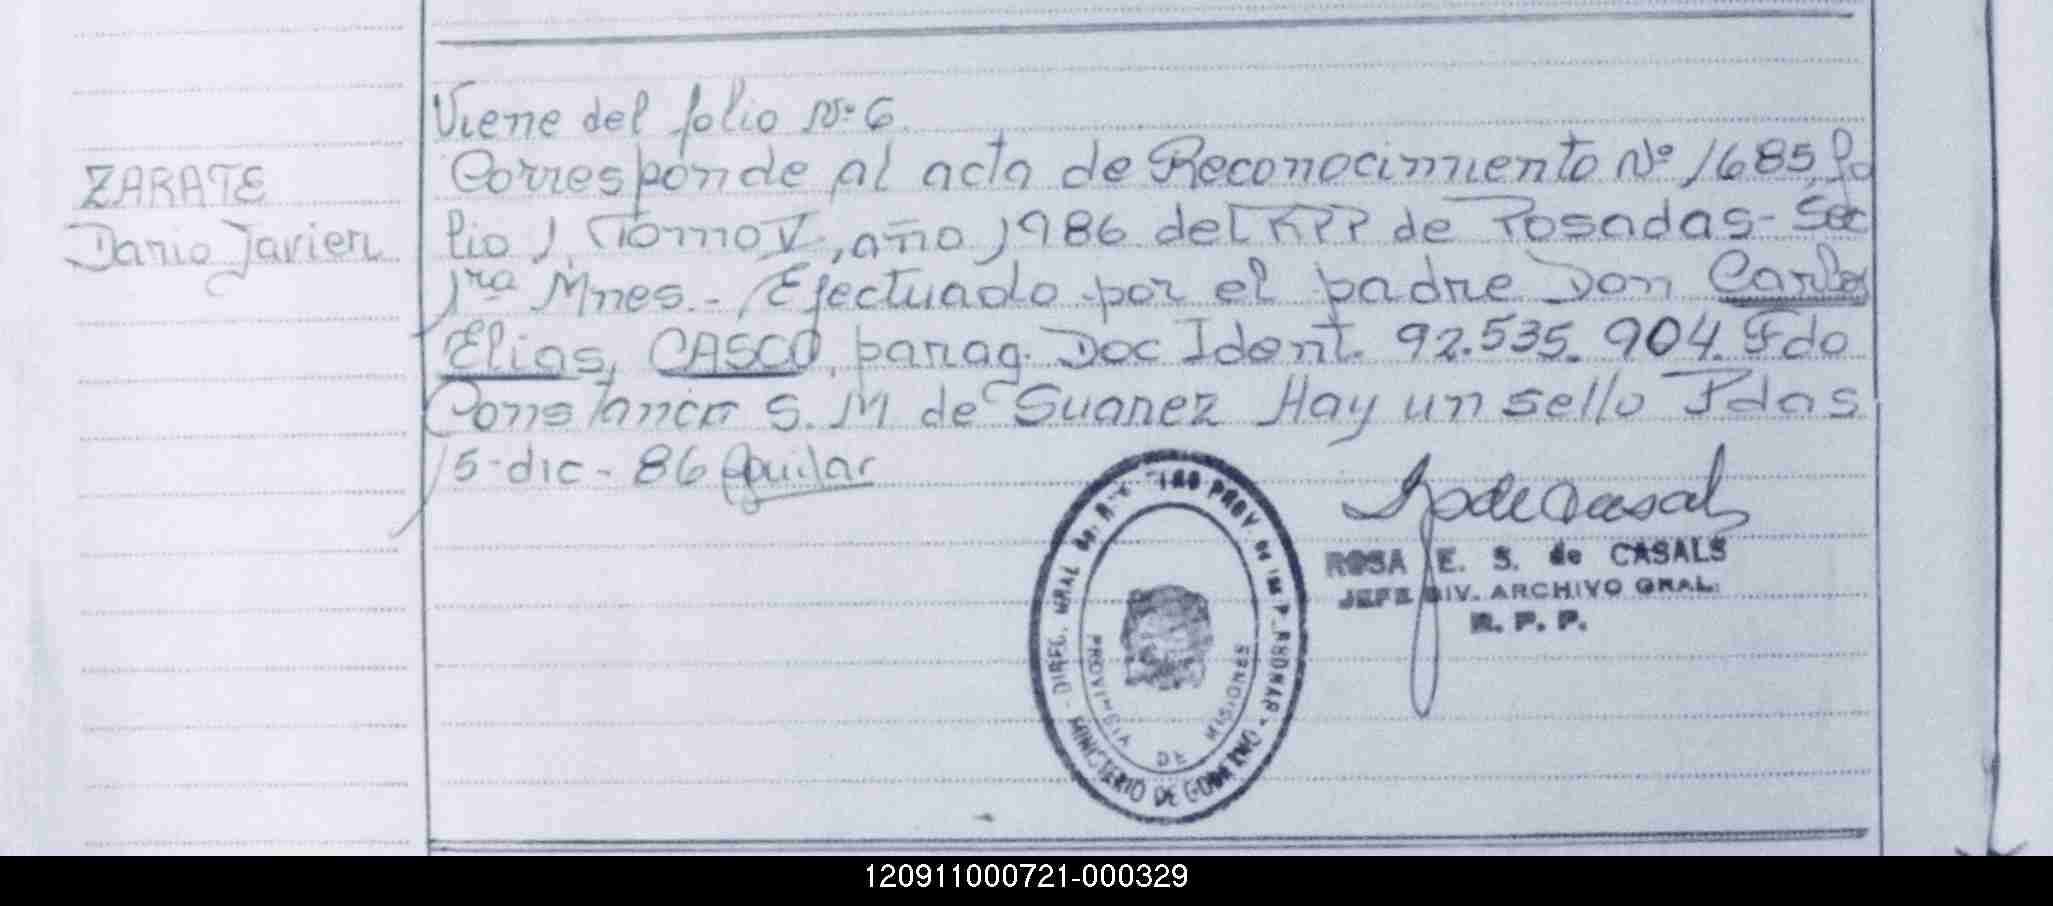 Viene del folio Nº 6.
ZARATE
Dario Javier
Corresponde al acta de Reconocimiento Nº 1685, fo
lio 1, Tomo V, año 1986 del RPP de Posadas - Sec
1ra Mnes. - Efectuado por el padre Don Carlos
Elias, CASCO, parag. Doc Ident. 92.535.904. Fdo
Constancia S. M de Suarez Hay un sello Pdas
15-dic-86 Aguilar
ROSA E. S. de CASALS
JEFE DIV. ARCHIVO GRAL.
R. P. P.
PROVINCIA DE MISIONES
MINISTERIO DE GOBIERNO
120911000721-000329